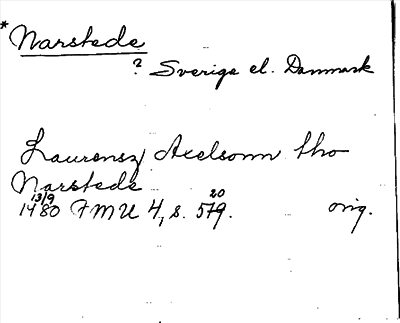 * Narstede
? Sverige el. Danmark
Laurensz Axelsonn tho
Narstede
13/9 20
1480 FMU 4, s. 579. orig.